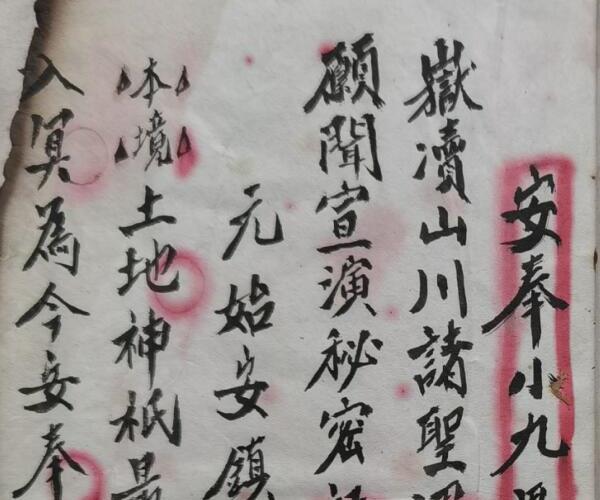 安奉小九
嶽瀆山川諸聖
願聞宣演秘密
元始安鎮
本境土地神祇最
入冥為今妥奉